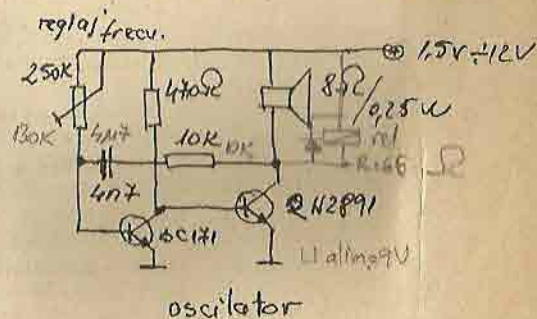 reglaj frecv.
⊕ 1,5V÷12V
250K
470Ω
8Ω/0,25W
130K
4M7
10K
10K
rel
R=66 Ω
4n7
BC171
2N2891
U alim=9V
oscilator